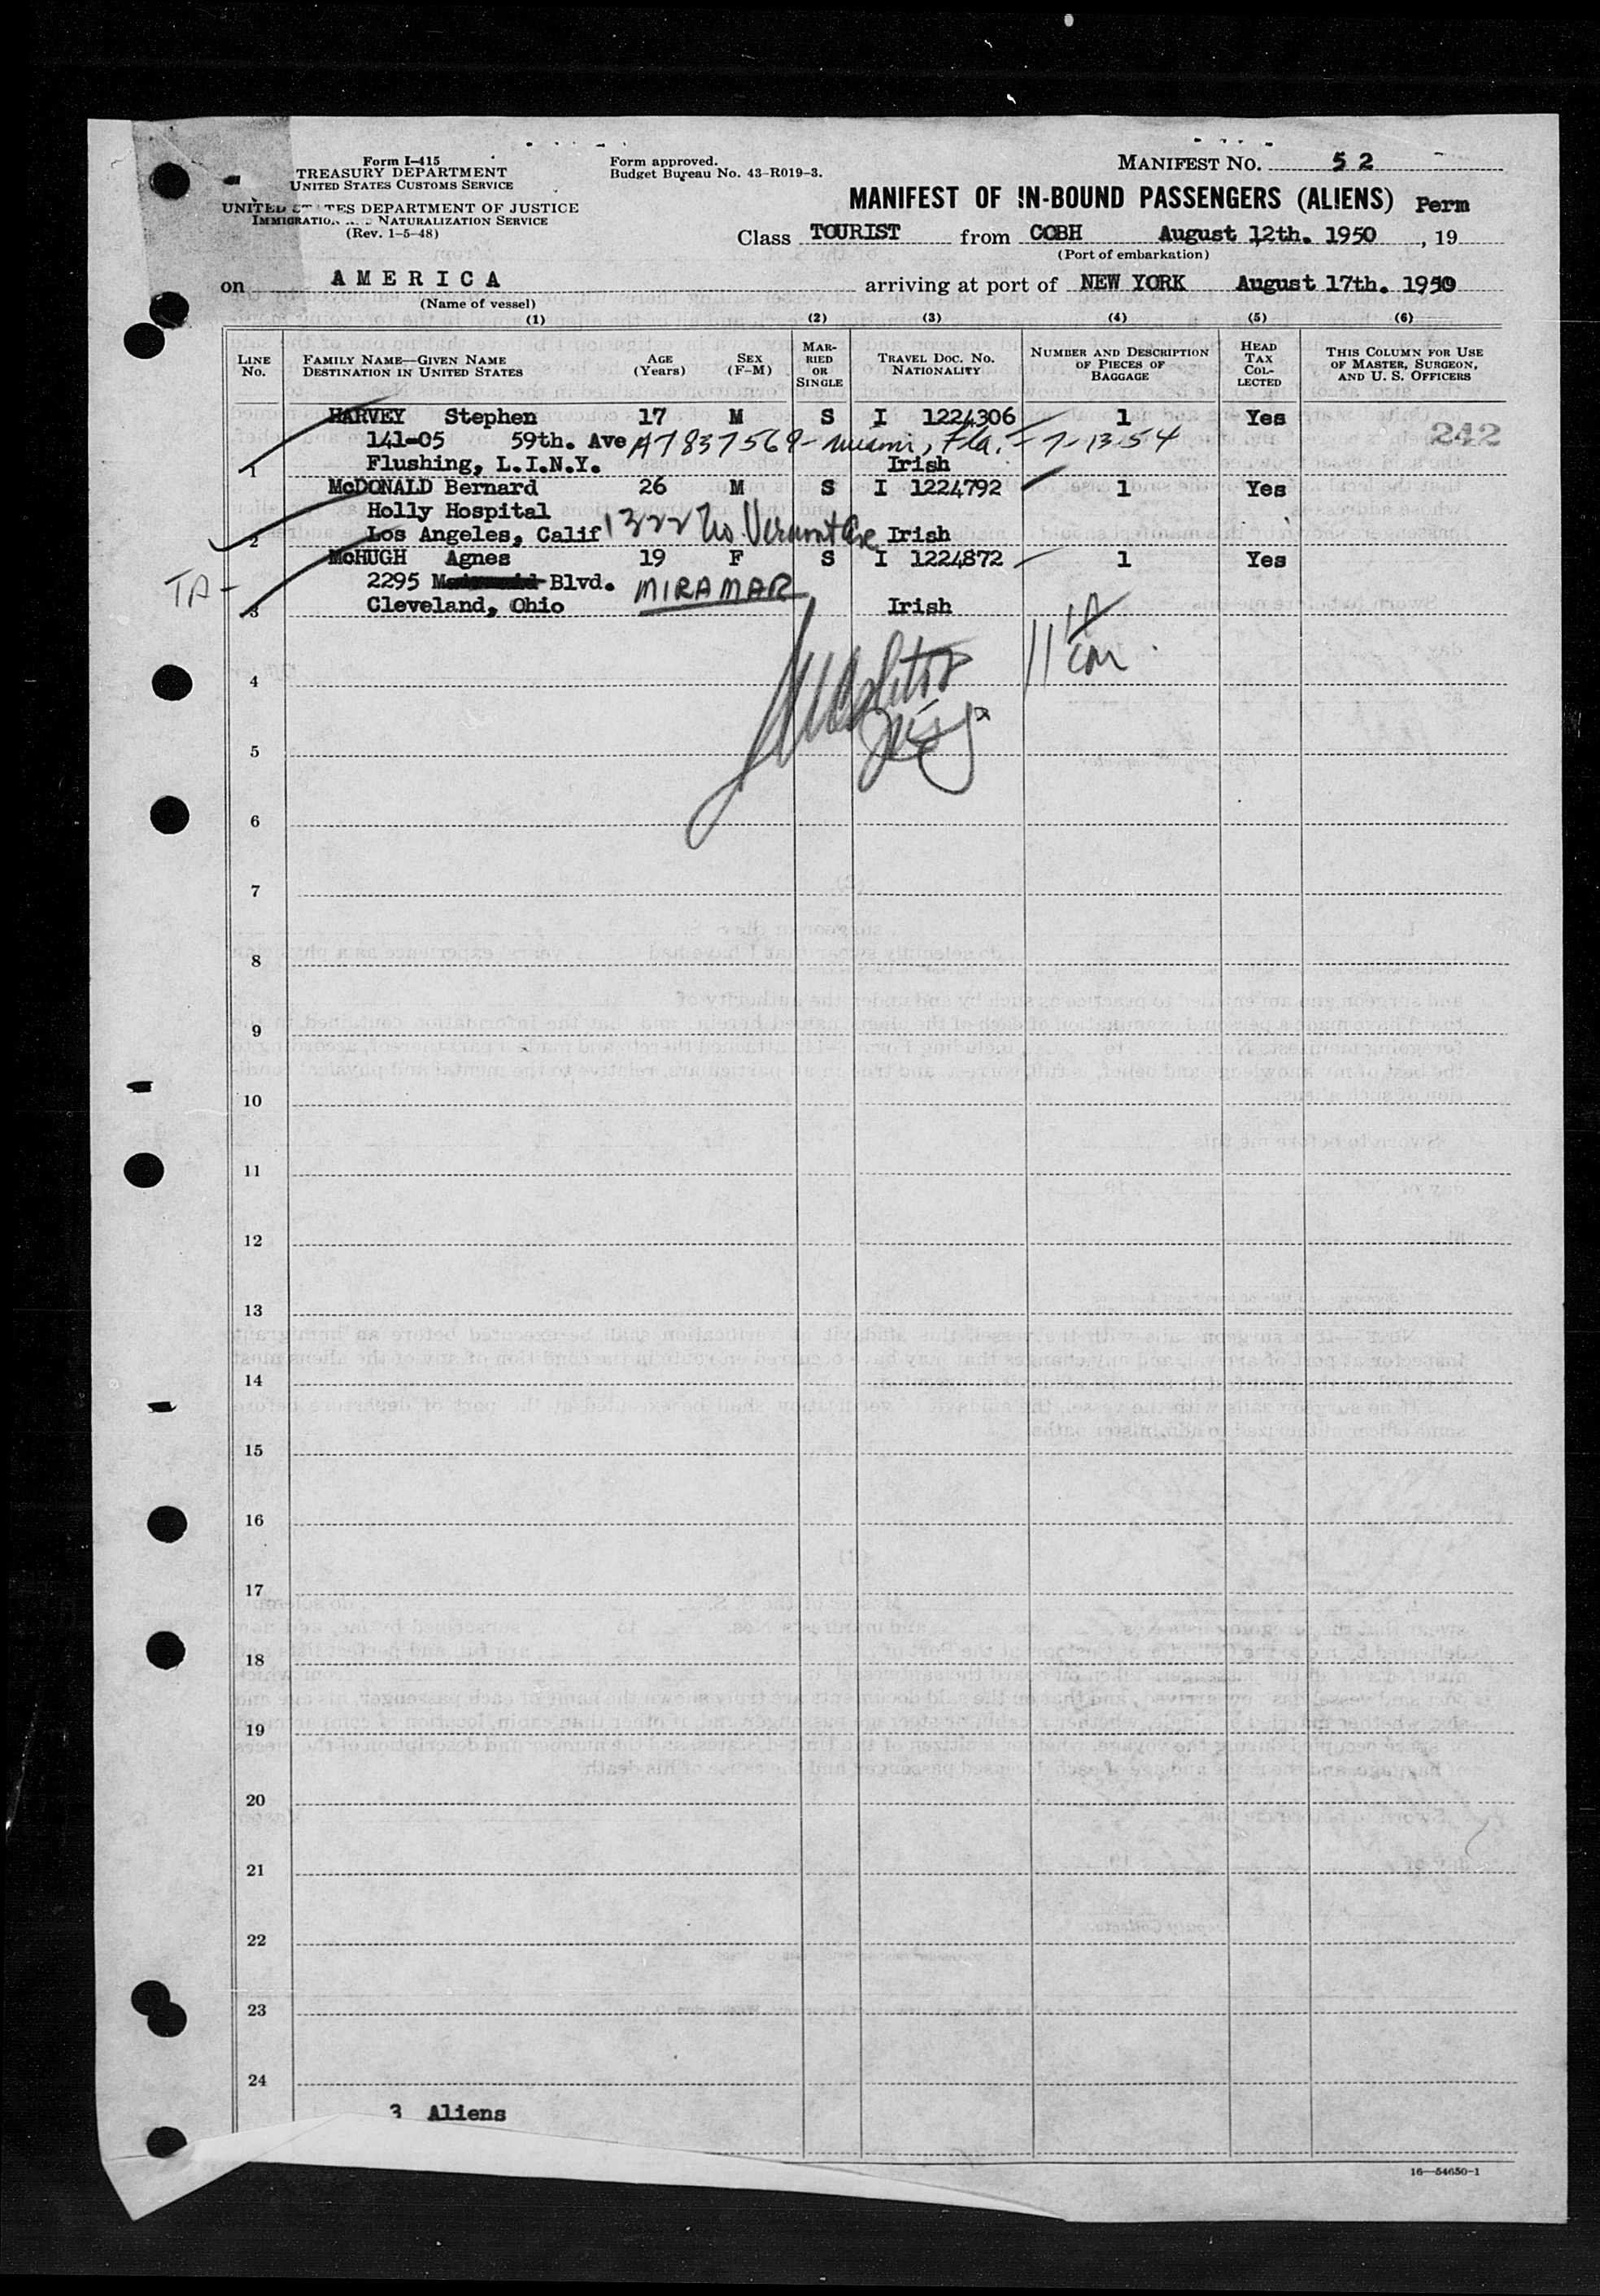 Form I-415
TREASURY DEPARTMENT
UNITED STATES CUSTOMS SERVICE
UNITED STATES DEPARTMENT OF JUSTICE
IMMIGRATION NATURALIZATION SERVICE
(Rev. 1-5-48)
Form approved.
Budget Bureau No. 43-R019-3.
MANIFEST NO. 52
MANIFEST OF IN-BOUND PASSENGERS (ALIENS) Perm
Class TOURIST from COBH August 12th. 1950, 19
(Port of embarkation)
on AMERICA arriving at port of NEW YORK August 17th. 1950
(Name of vessel)
(1) (2) (3) (4) (5) (6)
LINE No. FAMILY NAME—GIVEN NAME DESTINATION IN UNITED STATES AGE (Years) SEX (F-M) MARRIED OR SINGLE TRAVEL DOC. NO. NATIONALITY NUMBER AND DESCRIPTION OF PIECES OF BAGGAGE HEAD TAX COLLECTED THIS COLUMN FOR USE OF MASTER, SURGEON, AND U. S. OFFICERS
HARVEY Stephen 17 M S I 1224306 1 Yes
242
141-05 59th. Ave A7837569- Miami, Fla. - 7-13-54
1 Flushing, L.I.N.Y. Irish
McDONALD Bernard 26 M S I 1224792 1 Yes
Holly Hospital
2 Los Angeles, Calif 1322 No Vermont Ave Irish
McHUGH Agnes 19 F S I 1224872 1 Yes
TA- 2295 Blvd. MIRAMAR
3 Cleveland, Ohio Irish
4
5
6
7
8
9
10
11
12
13
14
15
16
17
18
19
20
21
22
23
24
3 Aliens
16—54650-1